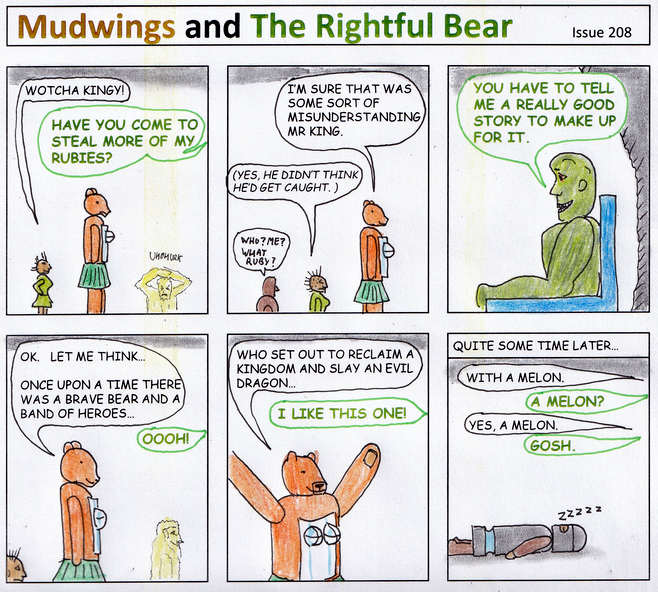 Mudwings and The Rightful Bear
Issue 208
WOTCHA KINGY!
HAVE YOU COME TO
STEAL MORE OF MY
RUBIES?
UHOHURK
I'M SURE THAT WAS
SOME SORT OF
MISUNDERSTANDING
MR KING.
(YES, HE DIDN'T THINK
HE'D GET CAUGHT. )
WHO? ME?
WHAT
RUBY?
YOU HAVE TO TELL
ME A REALLY GOOD
STORY TO MAKE UP
FOR IT.
OK. LET ME THINK...
ONCE UPON A TIME THERE
WAS A BRAVE BEAR AND A
BAND OF HEROES...
OOOH!
WHO SET OUT TO RECLAIM A
KINGDOM AND SLAY AN EVIL
DRAGON...
I LIKE THIS ONE!
QUITE SOME TIME LATER...
WITH A MELON.
A MELON?
YES, A MELON.
GOSH.
ZZZZZ